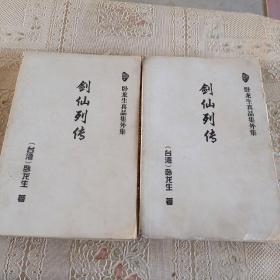 卧龙生真品集外集
剑仙列传
（台湾）卧龙生 著
卧龙生真品集外集
剑仙列传
（台湾）卧龙生 著